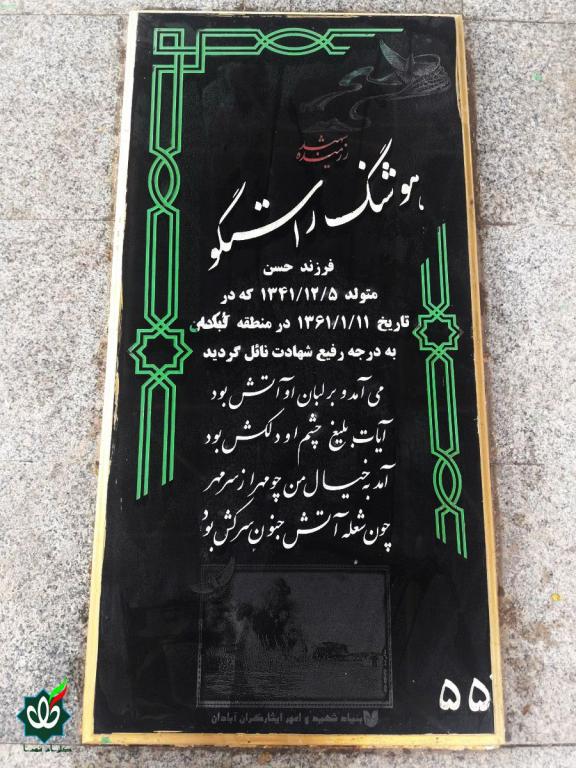 شهید
رزمنده
هوشنگ راستگو
فرزند حسن
متولد ۱۳۴۱/۱۲/۵ که در
تاریخ ۱۳۶۱/۱/۱۱ در منطقه
به درجه رفیع شهادت نائل گردید
می آمد و بر لبان او آتش بود
آیات بلیغ چشم او دلکش بود
آمد به خیال من چو مهر از سر مهر
چون شعله آتش جنون سرکش بود
بنیاد شهید و امور ایثارگران آبادان
۵۵